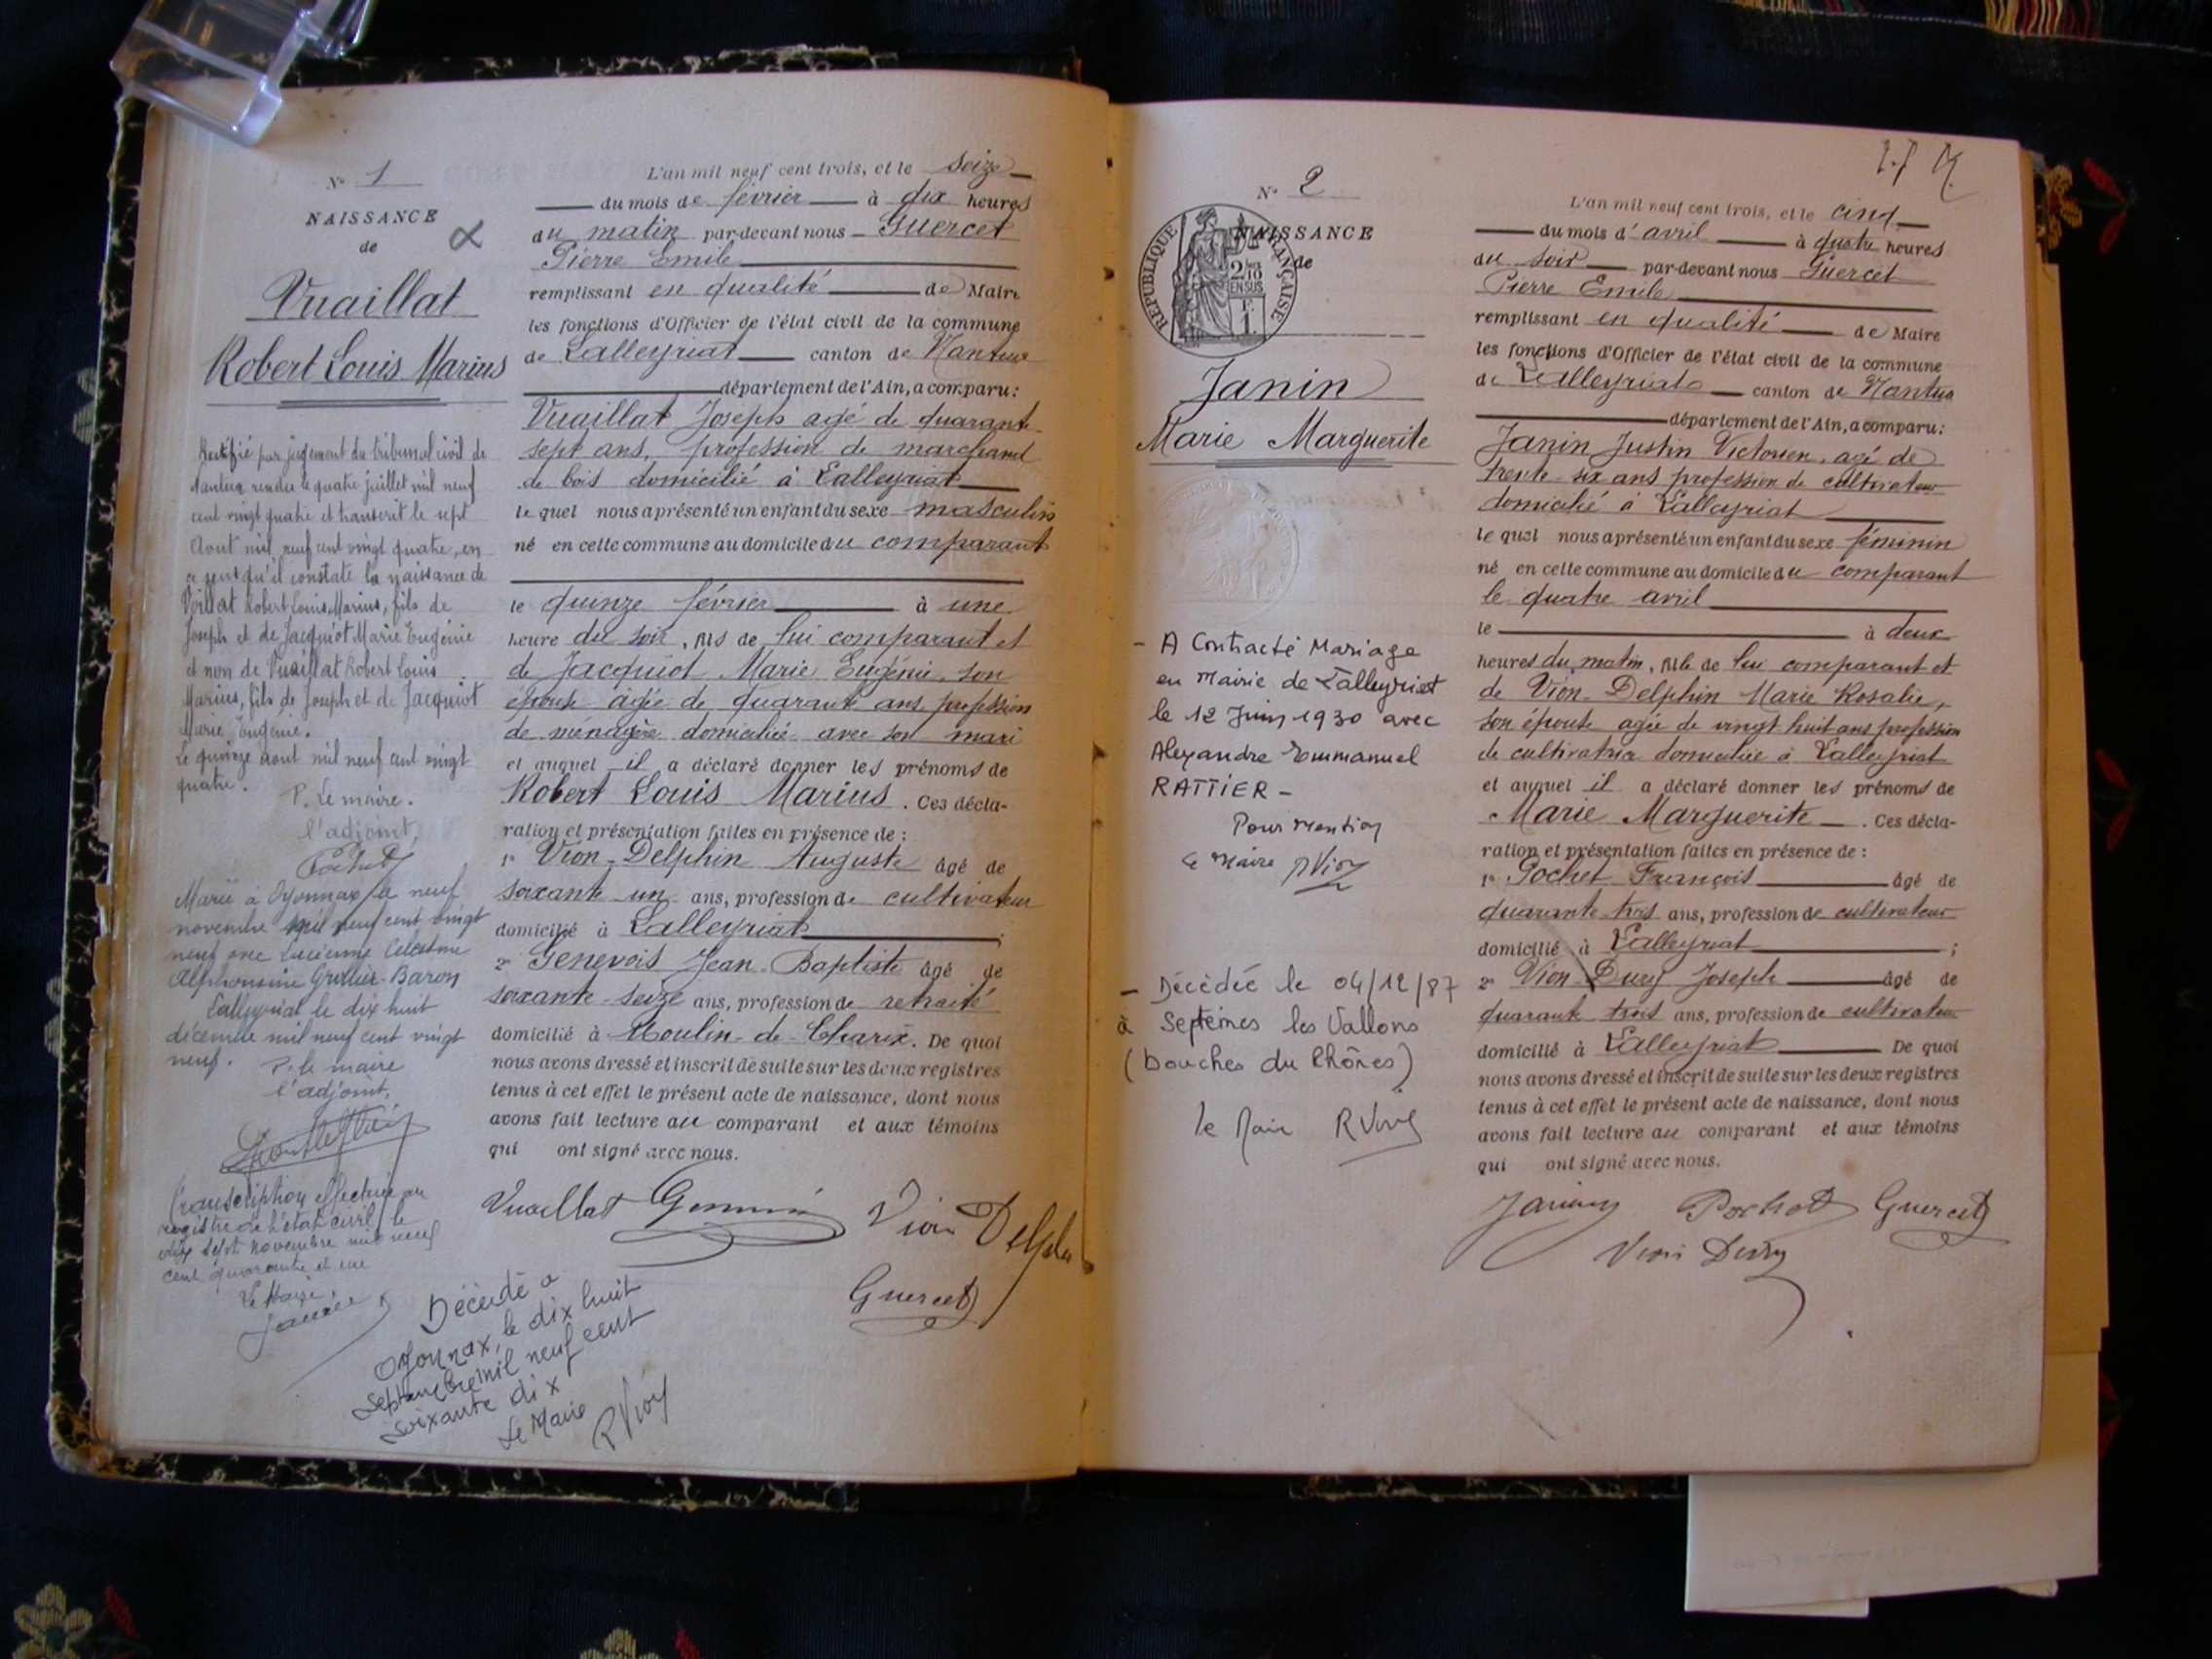 N° 1
NAISSANCE
de
Vuaillat
Robert Louis Marius
Rectifié par jugement du tribunal civil de
Nantua rendu le quatre juillet mil neuf
cent vingt quatre et transcrit le sept
Aout mil neuf cent vingt quatre, en
ce sens qu'il constate la naissance de
Voillat Robert Louis Marius, fils de
Joseph et de Jacquiot Marie Eugénie
et non de Vuaillat Robert Louis
Marius, fils de Joseph et de Jacquiot
Marie Eugénie.
Le quinze aout mil neuf cent vingt
quatre.
P. Le maire.
l'adjoint,
Marié à Oyonnax le neuf
novembre mil neuf cent vingt
neuf avec Lucienne Célestine
Alphonsine Grillier-Baron
Lalleyriat le dix huit
décembre mil neuf cent vingt
neuf.
P. le maire
l'adjoint,
Transcription effectuée au
registre de l'état civil le
dix sept novembre mil neuf
cent quarante et un
Le Maire,
Décédé à
Oyonnax, le dix huit
Septembre mil neuf cent
soixante dix
Le Maire
R Vion
L'an mil neuf cent trois, et le seize
du mois de février à dix heures
du matin par-devant nous Guercet
Pierre Emile
remplissant en qualité de Maire
les fonctions d'Officier de l'état civil de la commune
de Lalleyriat canton de Nantua
département de l'Ain, a comparu:
Vuaillat Joseph agé de quarante
sept ans, profession de marchand
de bois domicilié à Lalleyriat
le quel nous a présenté un enfant du sexe masculin
né en cette commune au domicile du comparant
le quinze février à une
heure du soir, fils de lui comparant et
de Jacquiot Marie Eugénie, son
épouse agée de quarante ans profession
de ménagère domiciliée avec son mari
et auquel il a déclaré donner les prénoms de
Robert Louis Marius. Ces décla-
ration et présentation faites en présence de :
1° Vion-Delphin Auguste âgé de
soixante un ans, profession de cultivateur
domicilié à Lalleyriat ;
2° Genevois Jean-Baptiste âgé de
soixante-seize ans, profession de retraité
domicilié à Moulin-de-Charix. De quoi
nous avons dressé et inscrit de suite sur les deux registres
tenus à cet effet le présent acte de naissance, dont nous
avons fait lecture au comparant et aux témoins
qui ont signé avec nous.
Vuaillat Vion Delphin
Guercet
N° 2
NAISSANCE
de
RÉPUBLIQUE FRANÇAISE
2/10
EN SUS
F.
1.
Janin
Marie Marguerite
- A Contracté Mariage
en Mairie de Lalleyriat
le 12 Juin 1930 avec
Alexandre Emmanuel
RATTIER -
Pour Mention
le Maire RVion
- Décèdée le 04/12/87
à Septèmes les Vallons
(Bouches du Rhônes)
le Maire RVion
L'an mil neuf cent trois, et le cinq
du mois d'avril à quatre heures
du soir par-devant nous Guercet
Pierre Emile
remplissant en qualité de Maire
les fonctions d'Officier de l'état civil de la commune
de Lalleyriat canton de Nantua
département de l'Ain, a comparu:
Janin Justin Victorien, agé de
trente-six ans profession de cultivateur
domicilié à Lalleyriat
le quel nous a présenté un enfant du sexe féminin
né en cette commune au domicile du comparant
le quatre avril
le à deux
heures du matin, fille de lui comparant et
de Vion-Delphin Marie Rosalie,
son épouse agée de vingt huit ans profession
de cultivatrice domiciliée à Lalleyriat
et auquel il a déclaré donner les prénoms de
Marie Marguerite. Ces décla-
ration et présentation faites en présence de :
1° Pochet François âgé de
quarante-trois ans, profession de cultivateur
domicilié à Lalleyriat ;
2° Vion-Dury Joseph âgé de
quarante trois ans, profession de cultivateur
domicilié à Lalleyriat De quoi
nous avons dressé et inscrit de suite sur les deux registres
tenus à cet effet le présent acte de naissance, dont nous
avons fait lecture au comparant et aux témoins
qui ont signé avec nous.
Janin Pochet Guercet
Vion Dury